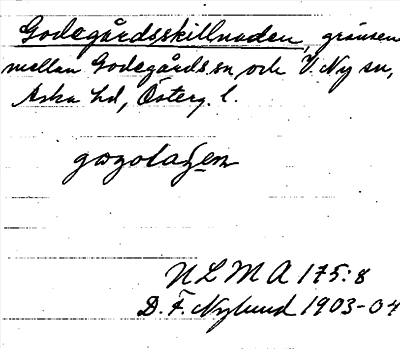 Godegårdsskillnaden, gränsen
mellan Godegårds sn och V. Ny sn,
Aska hd, Österg. l.
NLMA 175:8
D. F. Nylund 1903-04